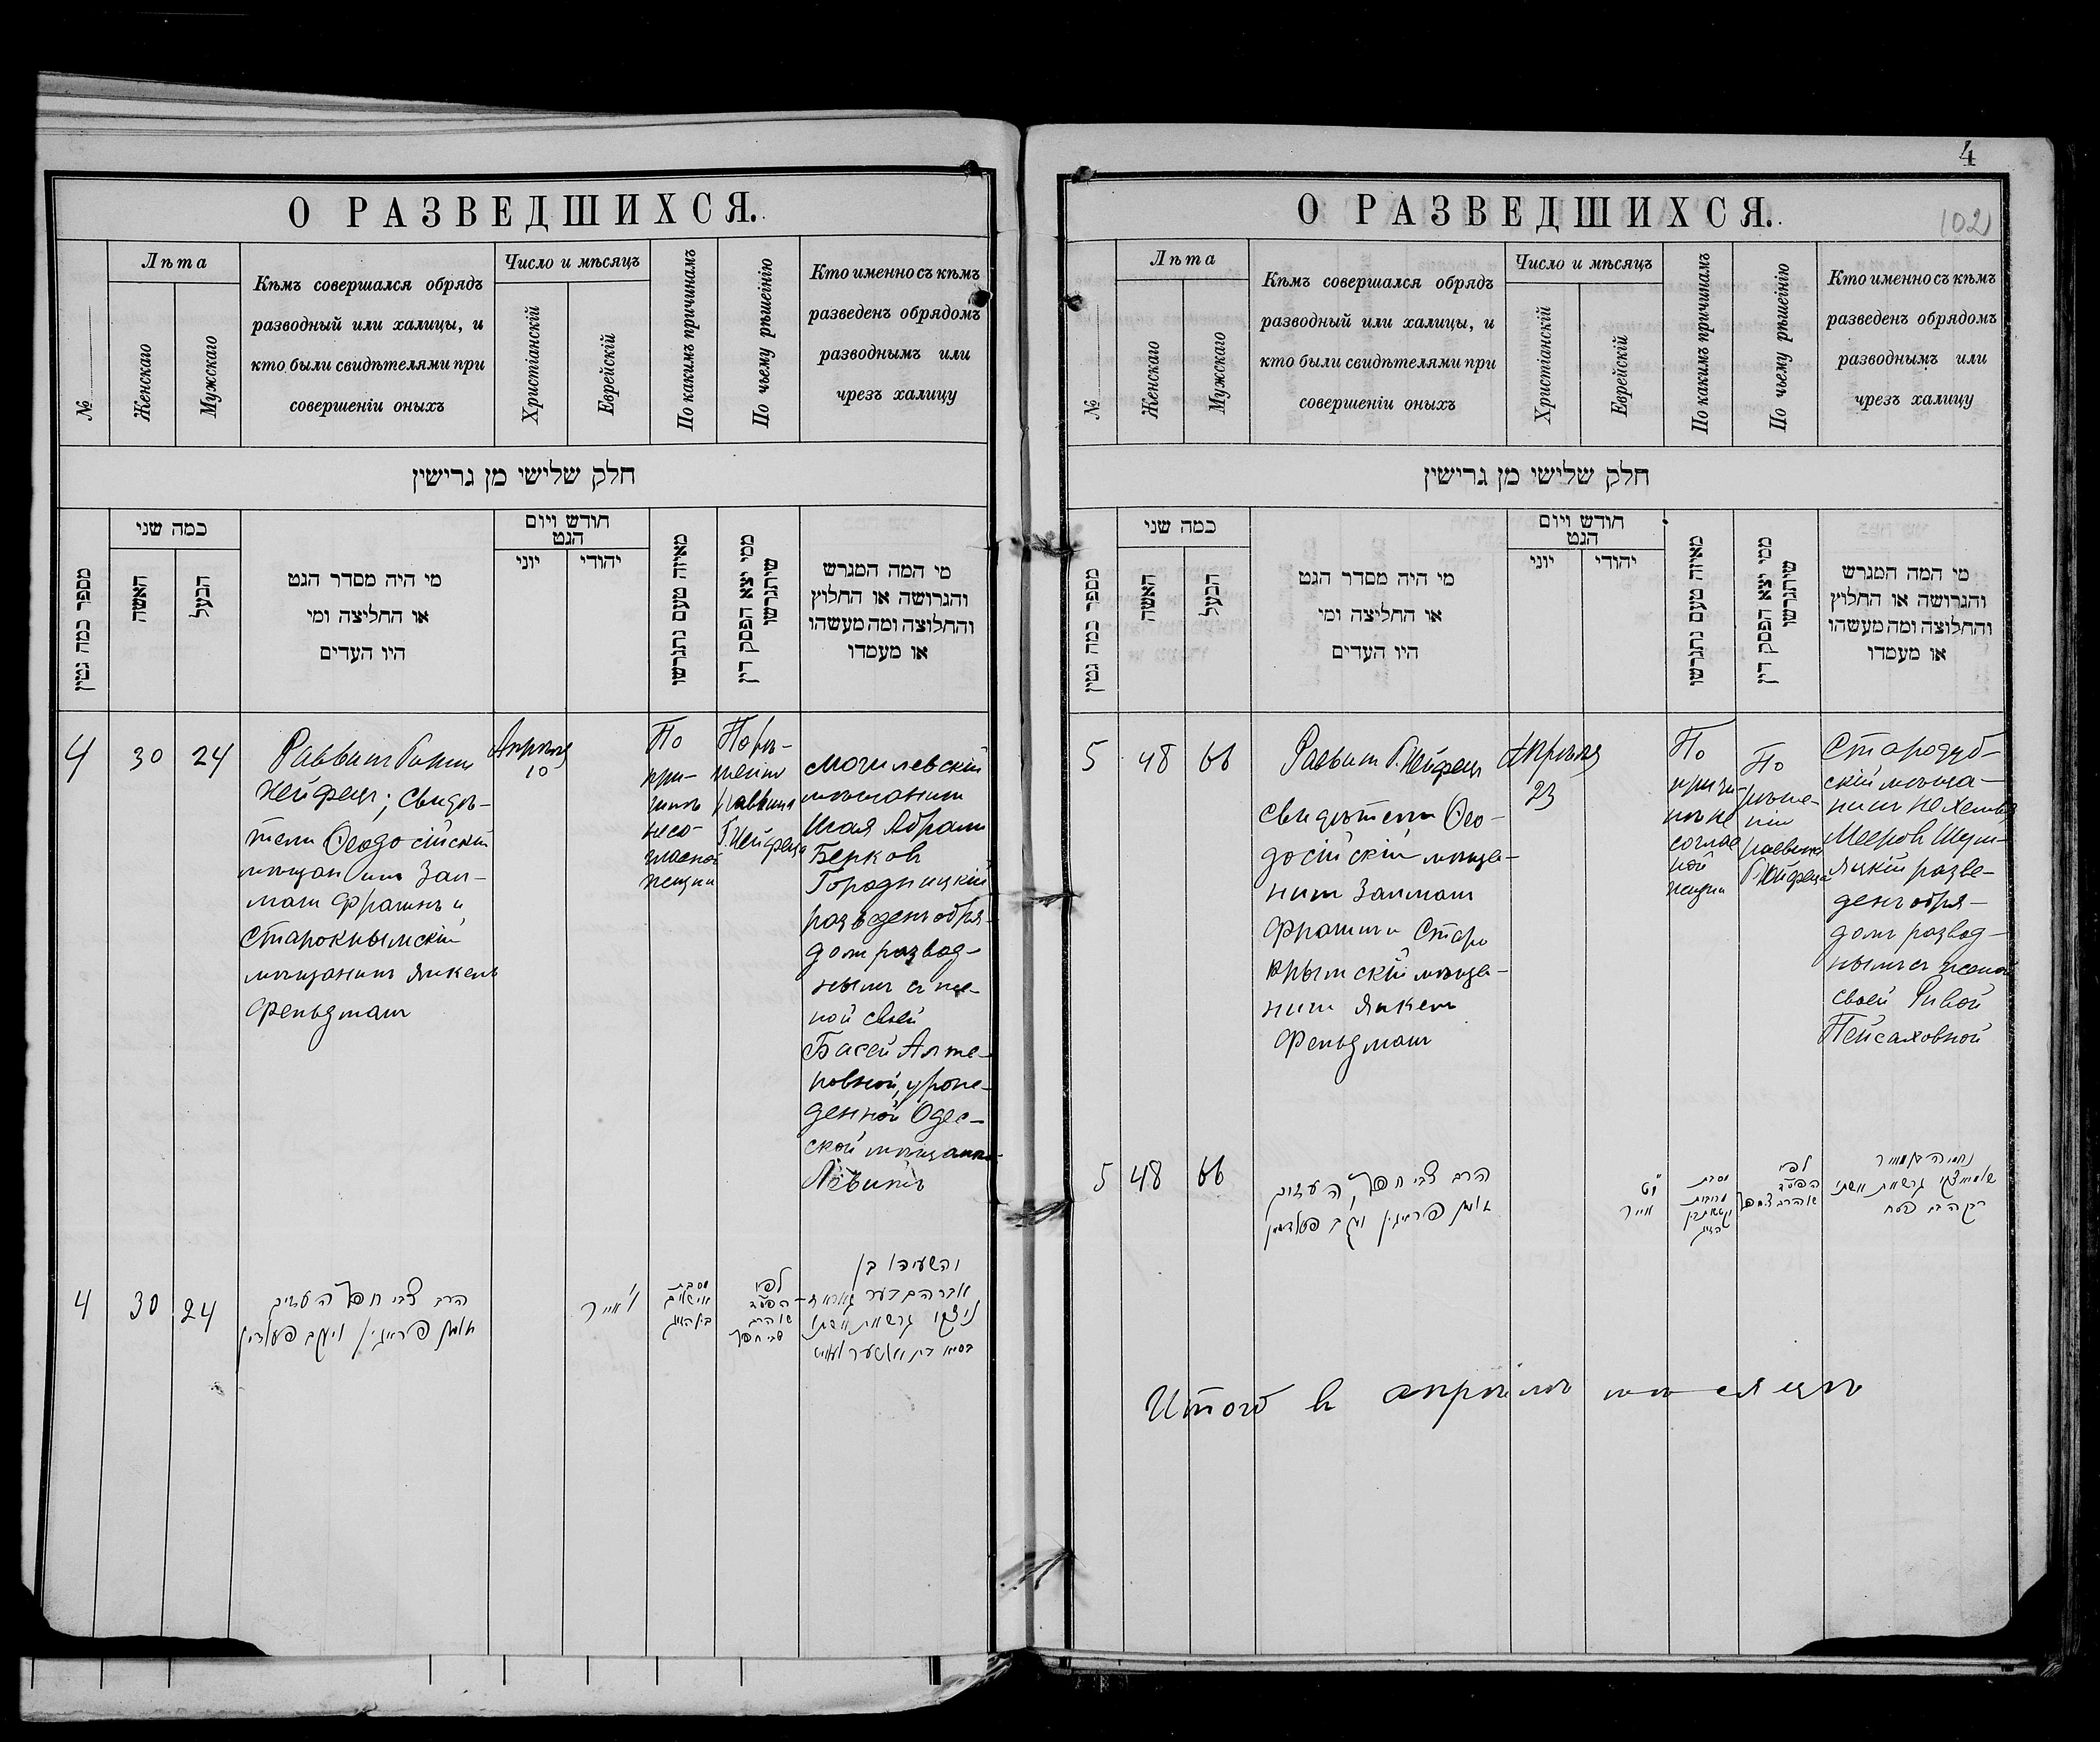 О РАЗВЕДШИХСЯ.
№
Лѣта
Женскаго
Мужскаго
Кѣмъ совершался обрядъ
разводный или халицы, и
кто были свидѣтелями при
совершеніи оныхъ
Число и мѣсяцъ
Христіанскій
Еврейскій
По какимъ причинамъ
По чьему рѣшенію
Кто именно съ кѣмъ
разведенъ обрядомъ
разводнымъ или
чрезъ халицу
חלק שלישי מן גרישין
מספר כמה גטין
כמה שני
האשה
הבעל
מי היה מסדר הגט
או החליצה ומי
היו העדים
חודש ויום
הגט
יוני
יהודי
מאיזה טעם נתגרשו
ממי יצא הפסק דין
שיתגרשו
מי המה המגרש
והגרושה או החלוץ
והחלוצה ומה מעשהו
או מעמדו
4
30
24
Раввинъ
Хейфецъ; свидѣ-
тели Ѳеодосійскій
мѣщанинъ Зал-
манъ Фрагинъ и
Старокрымскій
мѣщанинъ Янкель
Фельдманъ
Апрѣля
10
По
при-
чинѣ
несо-
гласной
жизни
По рѣ-
шенію
раввина
Г. Хейфеца
Могилевскій
мѣщанинъ
Шая Абрамъ
Берковъ
Городницкій
разведенъ обря-
домъ развод-
нымъ съ же-
ной своей
Басей Алте-
ровной, урож-
денной Одес-
ской мѣщанкой
Левитъ
4
30
24
הרב צבי חפץ העדים
זלמן פראגין ויעקב פעלדמן
אייר
לפי
הפס"ד
שהרב
צבי חפץ
בן
אברהם בער
גרש את אשתו
О РАЗВЕДШИХСЯ.
4
102
№
Лѣта
Женскаго
Мужскаго
Кѣмъ совершался обрядъ
разводный или халицы, и
кто были свидѣтелями при
совершеніи оныхъ
Число и мѣсяцъ
Христіанскій
Еврейскій
По какимъ причинамъ
По чьему рѣшенію
Кто именно съ кѣмъ
разведенъ обрядомъ
разводнымъ или
чрезъ халицу
חלק שלישי מן גרישין
מספר כמה גטין
כמה שני
האשה
הבעל
מי היה מסדר הגט
או החליצה ומי
היו העדים
חודש ויום
הגט
יוני
יהודי
מאיזה טעם נתגרשו
ממי יצא הפסק דין
שיתגרשו
מי המה המגרש
והגרושה או החלוץ
והחלוצה ומה מעשהו
או מעמדו
5
48
66
Раввинъ Г. Хейфецъ
свидѣтели Ѳео-
досійскій мѣща-
нинъ Залманъ
Фрагинъ и Старо
крымскій мѣща-
нинъ Янкель
Фельдманъ
Апрѣля
23
По
причи-
нѣ не
соглас
ной
жизни
По
рѣше-
нію
раввина
Г. Хейфеца
Стародуб-
скій мѣща-
нинъ Нехемья
Мееровъ
разве-
денъ обря-
домъ развод-
нымъ съ женой
своей Ривой
Пейсаховной
5
48
66
הרב צבי חפץ, העדים
זלמן פראגין ויעקב פעלדמן
אייר
לפי
הפס"ד
נחמיה בן מאיר
גרש את אשתו
רבקה בת פסח
Итого въ апрѣлѣ мѣсяцѣ